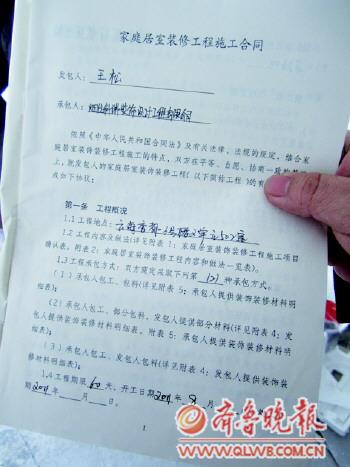 家庭居室装修工程施工合同
发包人：王松
承包人：
依照《中华人民共和国合同法》及有关法律、法规的规定，结合家
庭居室装饰装修工程施工的特点，双方在平等、自愿、协商一致的
上，就发包人的家庭居室装饰装修工程（以下简称工程）的有
成如下协议：
第一条 工程概况
1.1工程地点：
1.2工程内容及做法（详见附表1：家庭居室装饰装修工程施工项目
确认表，附表2：家庭居室装饰装修工程内容和做法一览表）。
1.3工程承包方式：双方商定采取下列第（2）种承包方式。
（1）承包人包工、包料（详见附表5：承包人提供装饰装修材料明
细表）；
（2）承包人包工、部分包料，发包人提供部分材料（详见附表4：发
包人提供装饰装修材料明细表，附表5：承包人提供装饰装修材料明
细表）；
（3）承包人包工、发包人包料（详见附表4：发包人提供装饰装
修材料明细表）。
1.4工程期限60天，开工日期2011年8月
期2011年 月 日。
1
齐鲁晚报
QLWB.COM.CN